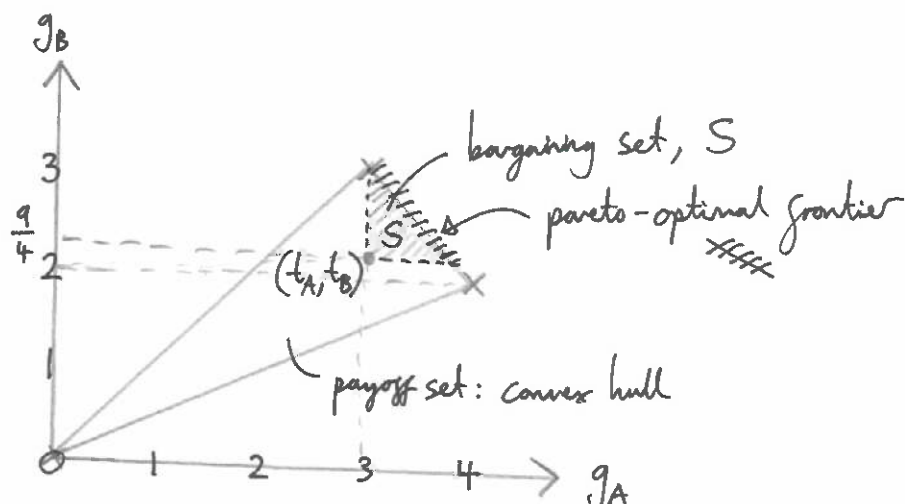 g_B
3
9/4
2
1
0
1 2 3 4
g_A
bargaining set, S
pareto-optimal frontier
S
(t_A, t_B)
payoff set: convex hull